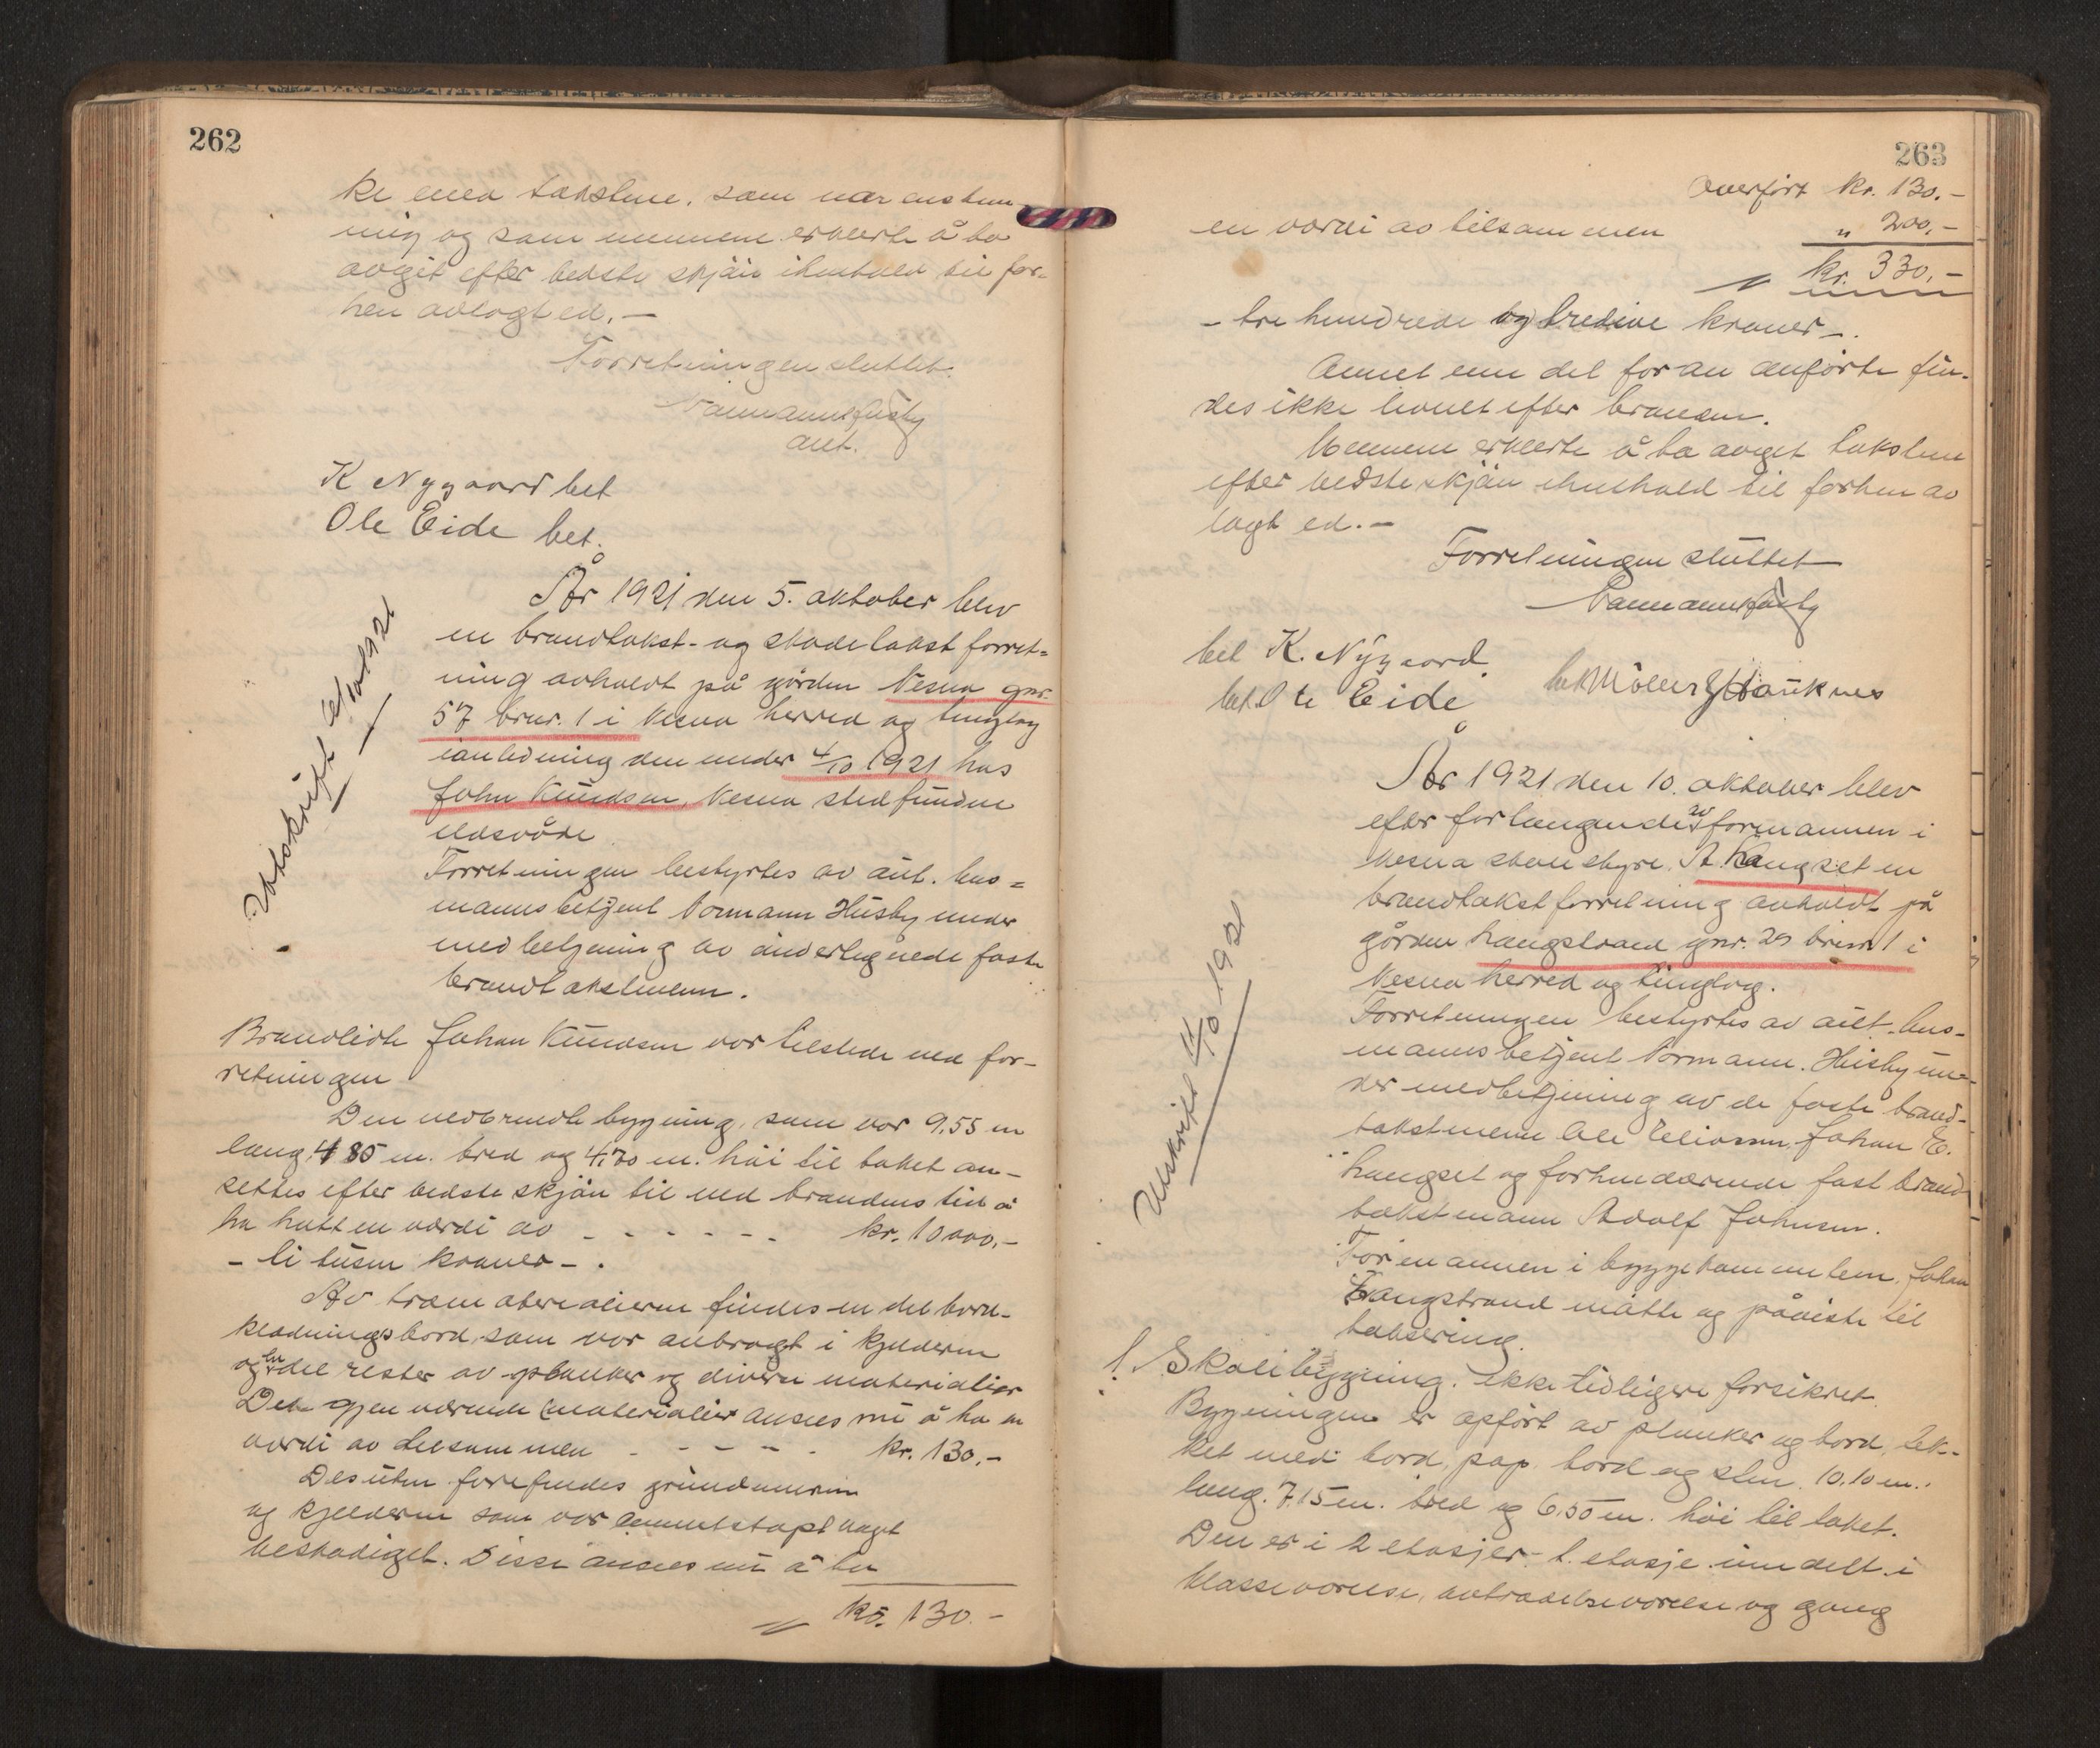 262
ke med takstene, som var enstem-
mig og som mennene erklærte å ha
avgit efter bedste skjön ihenhold til for-
hen avlagt ed. —
Forretningen sluttet.
Normann Husby
aut.
K Nygaard bet
Ole Eide bet.
Utskrift 6/10 1921
År 1921 den 5. oktober blev
en brandtakst- og skadetakst forret=
ning avholdt på gården Nesna gnr.
57 brnr. 1 i Nesna herred og tinglag
i anledning den under 4/10 1921 hos
Johan Knudsen, Nesna stedfundne
ildsvåde.
Forretningen bestyrtes av aut. lens=
mannsbetjent Normann Husby under
med betjening av undertegnede faste
brandtakstmenn.
Brandlidte Johan Knudsen var tilstede ved for-
retningen
Den nedbrendte bygning, som var 9,55 m
lang, 4 85 m. bred og 4,70 m. höi til taket an-
settes efter bedste skjön til ved brandens tid å
ha hatt en værdi av - - - - - - kr. 10000,-
- ti tusen kroner - .
Av træmaterialierne findes en del bord-
klædningsbord, som var anbragt i kjelderen
og en del rester av planker og diverse materialier
De gjenværende materialier ansees nu å ha en
værdi av tilsammen - - - - - kr. 130,-
Desuten forefindes grundmuren
og kjelderen som var cementstöpt noget
beskadiget. Disse ansees nu å ha
kr. 130.-
263
Overfört kr. 130.-
en værdi av tilsammen " 200,-
kr. 330,-
- tre hundrede og tredive kroner -.
Annet enn det foran anförte fin-
des ikke levnet efter branden.
Mennene erklærte å ha avgit takstene
efter bedste skjön ihenhold til forhen av
lagt ed. -
Forretningen sluttet
Normann Husby
bet K. Nygaard
bet. Ole Eide
bet Möller Hauknes
Utskrift 11/10 1921
År 1921 den 10. oktober blev
efter forlangende av formannen i
Nesna skolestyre, A. Langset en
brandtakstforretning avholdt på
gården Langstrand gnr. 29 brnr 1 i
Nesna herred og tinglag.
Forretningen bestyrtes av aut. lens-
mannsbetjent Normann. Husby un-
der medbetjening av de faste brand-
takstmenn Ole Eliassen, Johan E.
Langset og forhenværende fast brand-
takstmann Adolf Johnsen.
Formannen i byggekomiteen, Johan
Langstrand målte og påviste til
taksering.
1. Skolebygning. ikke tidligere forsikret.
Bygningen er opfört av planker og bord, tek-
ket med bord, pap, bord og sten. 10.10 m.
lang. 7.15 m. bred og 6.50 m. höi til taket.
Den er i 2 etasjer. 1. etasje inndelt i
klasseværelse, avtrædelseværelse og gang